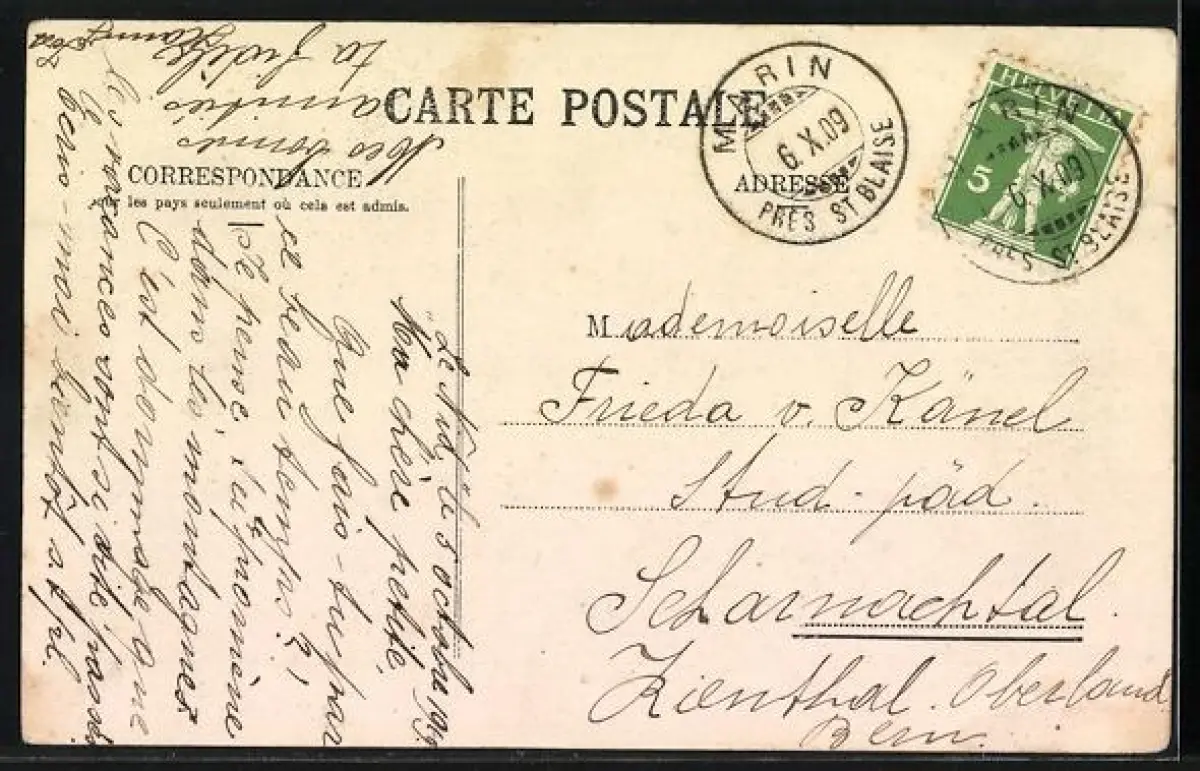 CARTE POSTALE
CORRESPONDANCE
les pays seulement où cela est admis.
ADRESSE
MARIN
6.X.09
PRÈS ST BLAISE
HELVETIA
5
MARIN
6.X.09
PRÈS ST. BLAISE
Mademoiselle
Frieda v. Känel
Stud. päd.
Scharnachtal.
Kienthal. Oberland
Bern.
Le 5 octobre 1909
Ma chère petite,
Que fais-tu par
ce beau temps?
Je pense
dans les montagnes
C'est dommage que
les vacances
Ecris-moi bientôt s.t.pl.
Mes bonnes
amitiés
ta